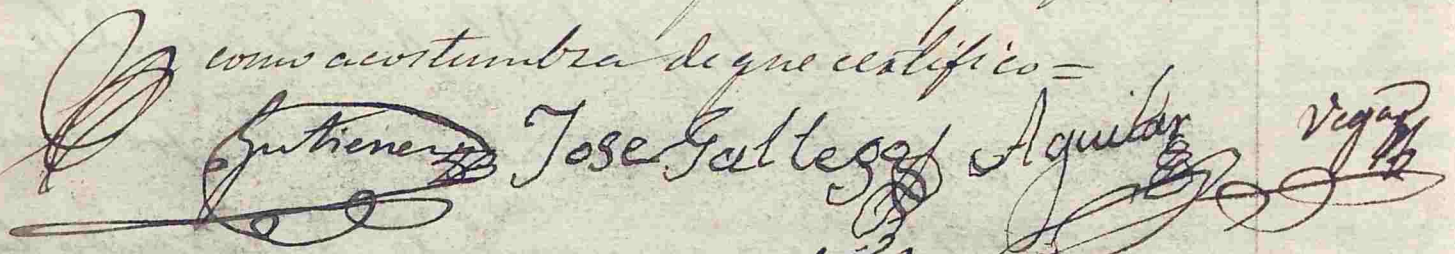 como acostumbra de que certifico=
Gutierrez Jose Gallego Aguilar Vega